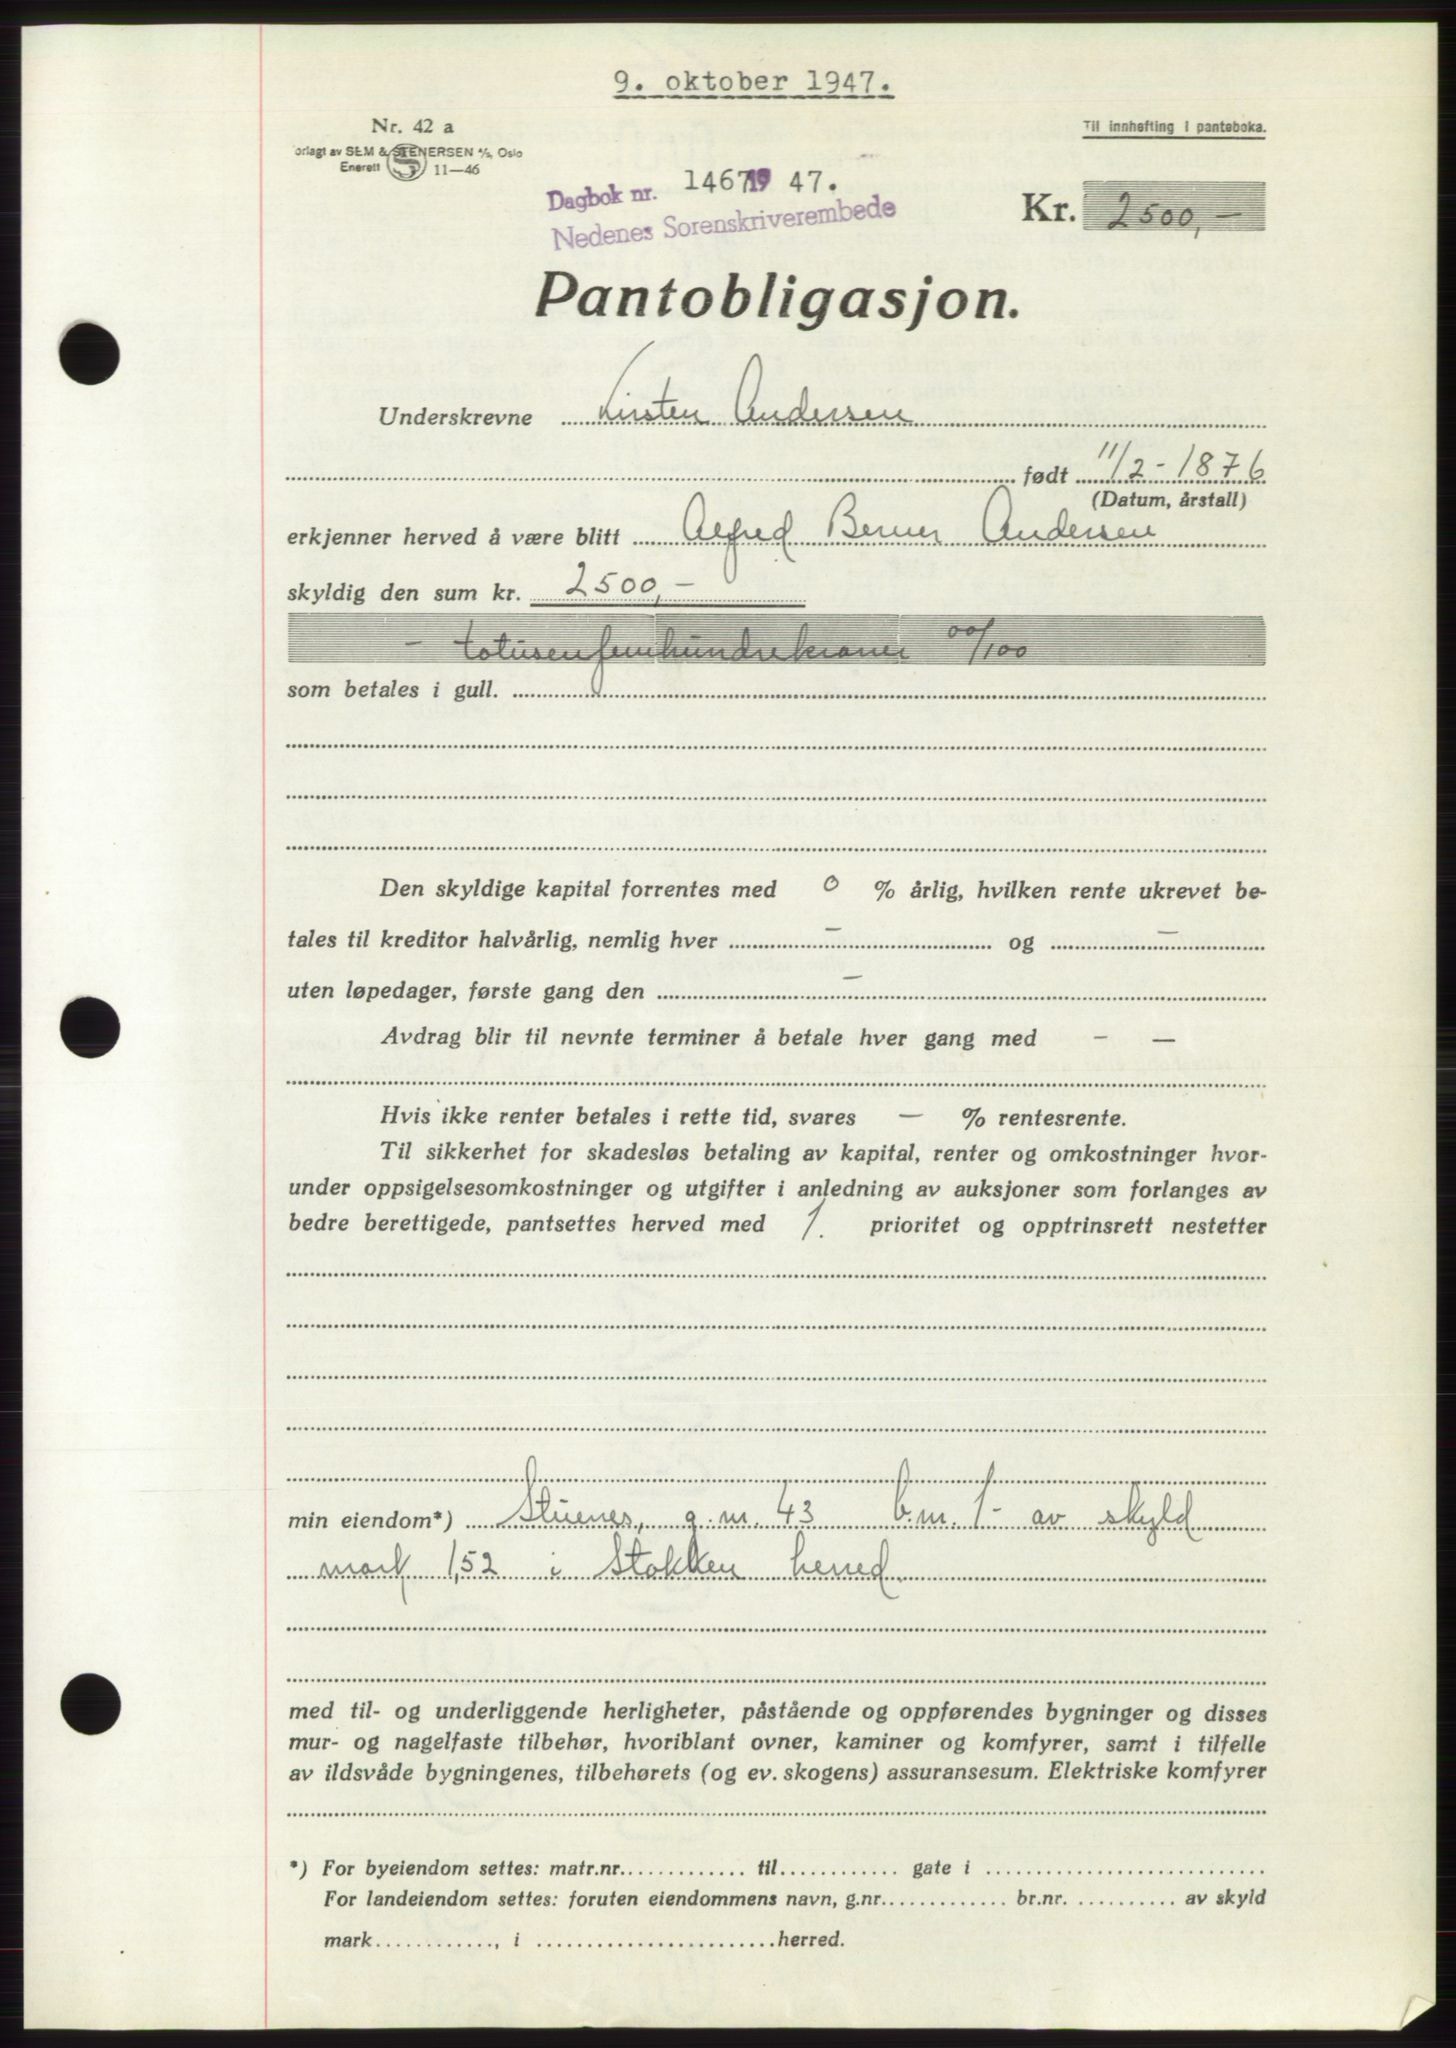 9. oktober 1947.
Nr. 42 a
Til innhefting i panteboka.
orlagt av SEM & STENERSEN A/S, Oslo
Enerett 11—46
Dagbok nr. 1467 19 47.
Nedenes Sorenskriverembede
Kr. 2500,-
Pantobligasjon.
Underskrevne Kirsten Andersen
født 11/2-1876
(Datum, årstall)
erkjenner herved å være blitt Alfred Berner Andersen
skyldig den sum kr. 2500,-
- totusenfemhundrekroner 00/100
som betales i gull.
Den skyldige kapital forrentes med 0 % årlig, hvilken rente ukrevet be-
tales til kreditor halvårlig, nemlig hver — og —
uten løpedager, første gang den —
Avdrag blir til nevnte terminer å betale hver gang med - —
Hvis ikke renter betales i rette tid, svares — % rentesrente.
Til sikkerhet for skadesløs betaling av kapital, renter og omkostninger hvor-
under oppsigelsesomkostninger og utgifter i anledning av auksjoner som forlanges av
bedre berettigede, pantsettes herved med 1. prioritet og opptrinsrett nestetter
min eiendom*) Stuenes, g.nr. 43 b.nr. 1 - av skyld
mark 1,52 i Stokken herred
med til- og underliggende herligheter, påstående og oppførendes bygninger og disses
mur- og nagelfaste tilbehør, hvoriblant ovner, kaminer og komfyrer, samt i tilfelle
av ildsvåde bygningenes, tilbehørets (og ev. skogens) assuransesum. Elektriske komfyrer
*) For byeiendom settes: matr.nr. til gate i
For landeiendom settes: foruten eiendommens navn, g.nr. br.nr. av skyld
mark , i herred.